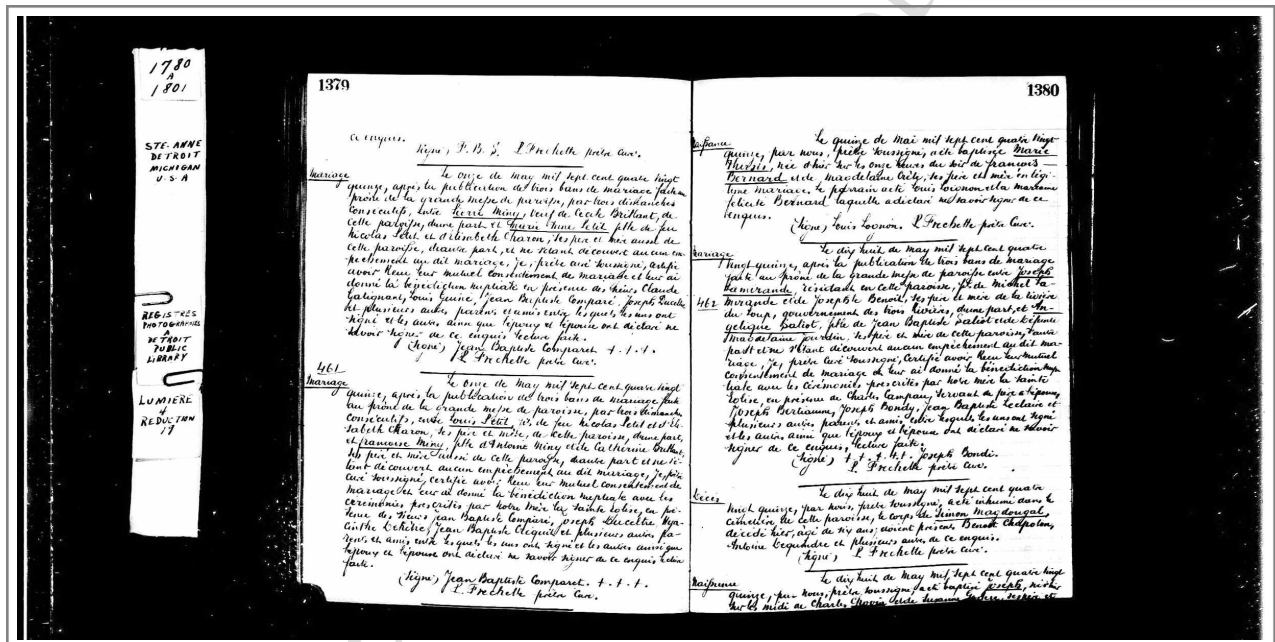 1780
A
1801
STE-ANNE
DETROIT
MICHIGAN
U.S.A
REGISTRES
PHOTOGRAPHIES
DETROIT
PUBLIC
LIBRARY
LUMIERE
4
REDUCTION
19
1379
ce enquis.
Signé, F. B. L. Frechette prêtre Curé.
Mariage
Le onze de May mil sept cent quatre vingt
quinze, après la publication de trois bans de mariage faite au
prône de la grande messe de paroisse, par trois dimanches
Consecutifs, entre Pierre Miny, veuf de Cecile Brillant, de
cette paroisse, d'une part et Marie Anne Petit fille de feu
Nicolas Petit et d'elisabeth Charon, ses père et mère aussi de
cette paroisse, d'autre part, et ne s'étant découvert aucun em-
pechement au dit mariage, je, prêtre curé soussigné, certifie
avoir Reçu leur mutuel consentement de mariage et leur ai
donné la bénédiction nuptiale en présence des Sieurs Claude
Gatignant, Louis Jean Baptiste Comparé, Joseph
et plusieurs autres parens et amis entre lesquels les uns ont
signé et les autres ainsi que l'époux et l'épouse ont déclaré ne
savoir signer de ce enquis lecture faite.
(Signé) Jean Baptiste Comparet. + . + . + .
L. Frechette prêtre Curé.
461
Mariage
Le onze de May mil sept cent quatre vingt
quinze, après la publication de trois bans de mariage faite
au prône de la grande messe de paroisse, par trois dimanches
consecutifs, entre Louis Petit, fs. de feu Nicolas Petit et d'Eli-
sabeth Charon, ses père et mère, de cette paroisse, d'une part,
et francoise Miny, fille d'Antoine Miny et de Catherine Brillant,
ses père et mère aussi de cette paroisse, d'autre part et ne s'é-
tant découvert aucun empechement au dit mariage, Je, prêtre
curé soussigné, certifie avoir Reçu leur mutuel consentement de
mariage et leur ai donné la bénédiction nuptiale avec les
cérémonies prescrites par notre Mère la Sainte église, en pré-
sence des Sieurs jean Baptiste Comparé, joseph Hya-
cinthe Jean Baptiste et plusieurs autres pa-
rens et amis entre lesquels les uns ont signé et les autres ainsi que
l'époux et l'épouse ont déclaré ne savoir signer de ce enquis lecture
faite.
(Signé) Jean Baptiste Comparet. + . + . + .
L. Frechette prêtre Curé.
1380
Naissance
Le quinze de Mai mil sept cent quatre vingt
quinze, par nous, prêtre soussigné, a été baptisée Marie
née d'hier sur les onze heures du soir de francois
Bernard et de Magdelaine ses père et mère en légi-
time mariage. Le parrain a été Louis Loignon et la marraine
felicité Bernard laquelle a déclaré ne savoir signer de ce
enquis.
(Signé) Louis Lognon. L. Frechette prêtre Curé.
Mariage
Le dix huit de May mil sept cent quatre
vingt quinze, après la publication de trois bans de mariage
faite au prône de la grande messe de paroisse entre Joseph
Lamerande, résidant en cette paroisse, fs. de Michel La-
462
merande et de Josephte Benoit, ses père et mère de la rivière
du Loup, gouvernement des trois Rivières, d'une part, et An-
gelique Saliot, fille de Jean Baptiste Saliot et de défunte
Magdelaine jourdin, ses père et mère de cette paroisse, d'autre
part et ne s'étant découvert aucun empêchement au dit ma-
riage, Je, prêtre curé soussigné, Certifie avoir Reçu leur mutuel
consentement de mariage et leur ai donné la bénédiction nup-
tiale avec les cérémonies prescrites par notre mère la Sainte
Eglise, en présence de Charles Campau, servant de père à l'épouse,
Joseph Berthiaume, Joseph Bondy, Jean Baptiste Leclaire et
plusieurs autres parents et amis entre lesquels les uns ont signé
et les autres ainsi que l'époux et l'épouse ont déclaré ne savoir
signer de ce enquis, lecture faite.
(Signé) + . + . + . +. Joseph Bondi.
L. Frechette prêtre Curé.
Décès
Le dix huit de May mil sept cent quatre
vingt quinze, par nous, prêtre soussigné, a été inhumé dans le
cimetière de cette paroisse, le corps de Simon Magdougal,
décédé hier, âgé de six ans; étoient présens Benoit Chapoton,
Antoine Dequindre et plusieurs autres de ce enquis.
(Signé) L. Frechette prêtre Curé.
Naissance
Le dix huit de May mil sept cent quatre vingt
quinze, par nous, prêtre soussigné, a été baptisé Joseph, né hier
sur les midi de Charles Chovin et de Susanne ses père et